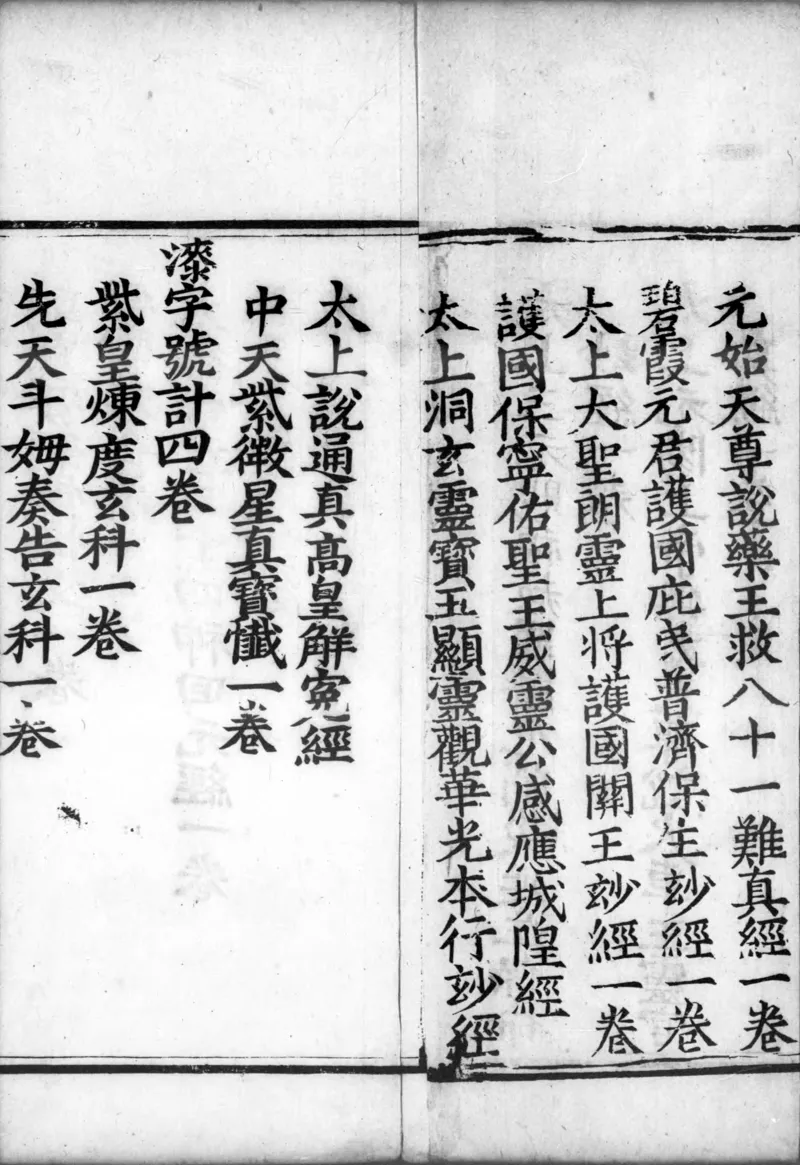 元始天尊說藥王救八十一難真經一卷
碧霞元君護國庇民普濟保生玅經一卷
太上大聖朗靈上將護國關王玅經一卷
護國保寧佑聖王威靈公感應城隍經
太上洞玄靈寶五顯靈觀華光本行玅經
太上說通真高皇解寃經
中天紫微星真寶懺一卷
漆字號計四卷
紫皇煉度玄科一卷
先天斗姆奏告玄科一卷